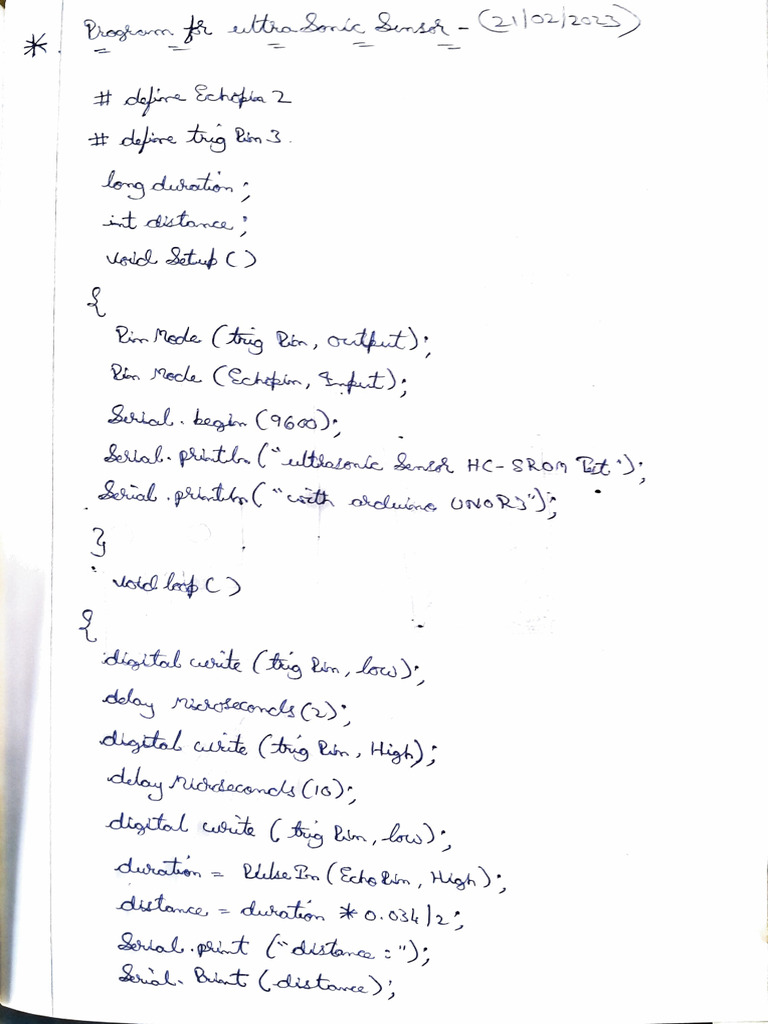 * Program for ultra Sonic Sensor - (21/02/2023)
# define Echopin 2
# define trig Pin 3.
long duration;
int distance;
void Setup ()
{
Pin Mode (trig Pin, output);
Pin Mode (Echopin, Input);
Serial. begin (9600);
Serial. println ("ultrasonic Sensor HC-SR04 Test");
Serial. println ("with arduino UNOR3");
}
void loop ()
{
digital write (trig Pin, low);
delay Microseconds (2);
digital write (trig Pin, High);
delay Microseconds (10);
digital write (trig Pin, low);
duration = Pulse In (Echo Pin, High);
distance = duration * 0.034/2;
Serial. print ("distance :");
Serial. Print (distance);